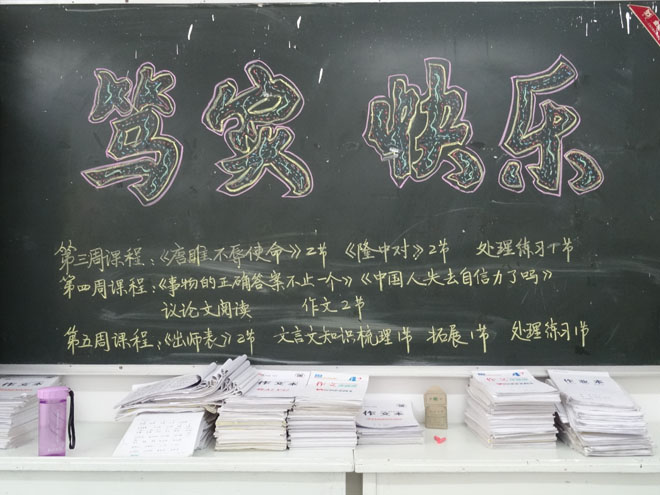 笃实 快乐
第三周课程：《唐雎不辱使命》2节 《隆中对》2节 处理练习1节
第四周课程：《事物的正确答案不止一个》《中国人失去自信力了吗》
议论文阅读 作文2节
第五周课程：《出师表》2节 文言文知识梳理1节 拓展1节 处理练习1节
作文本
作文
作文本
作文本